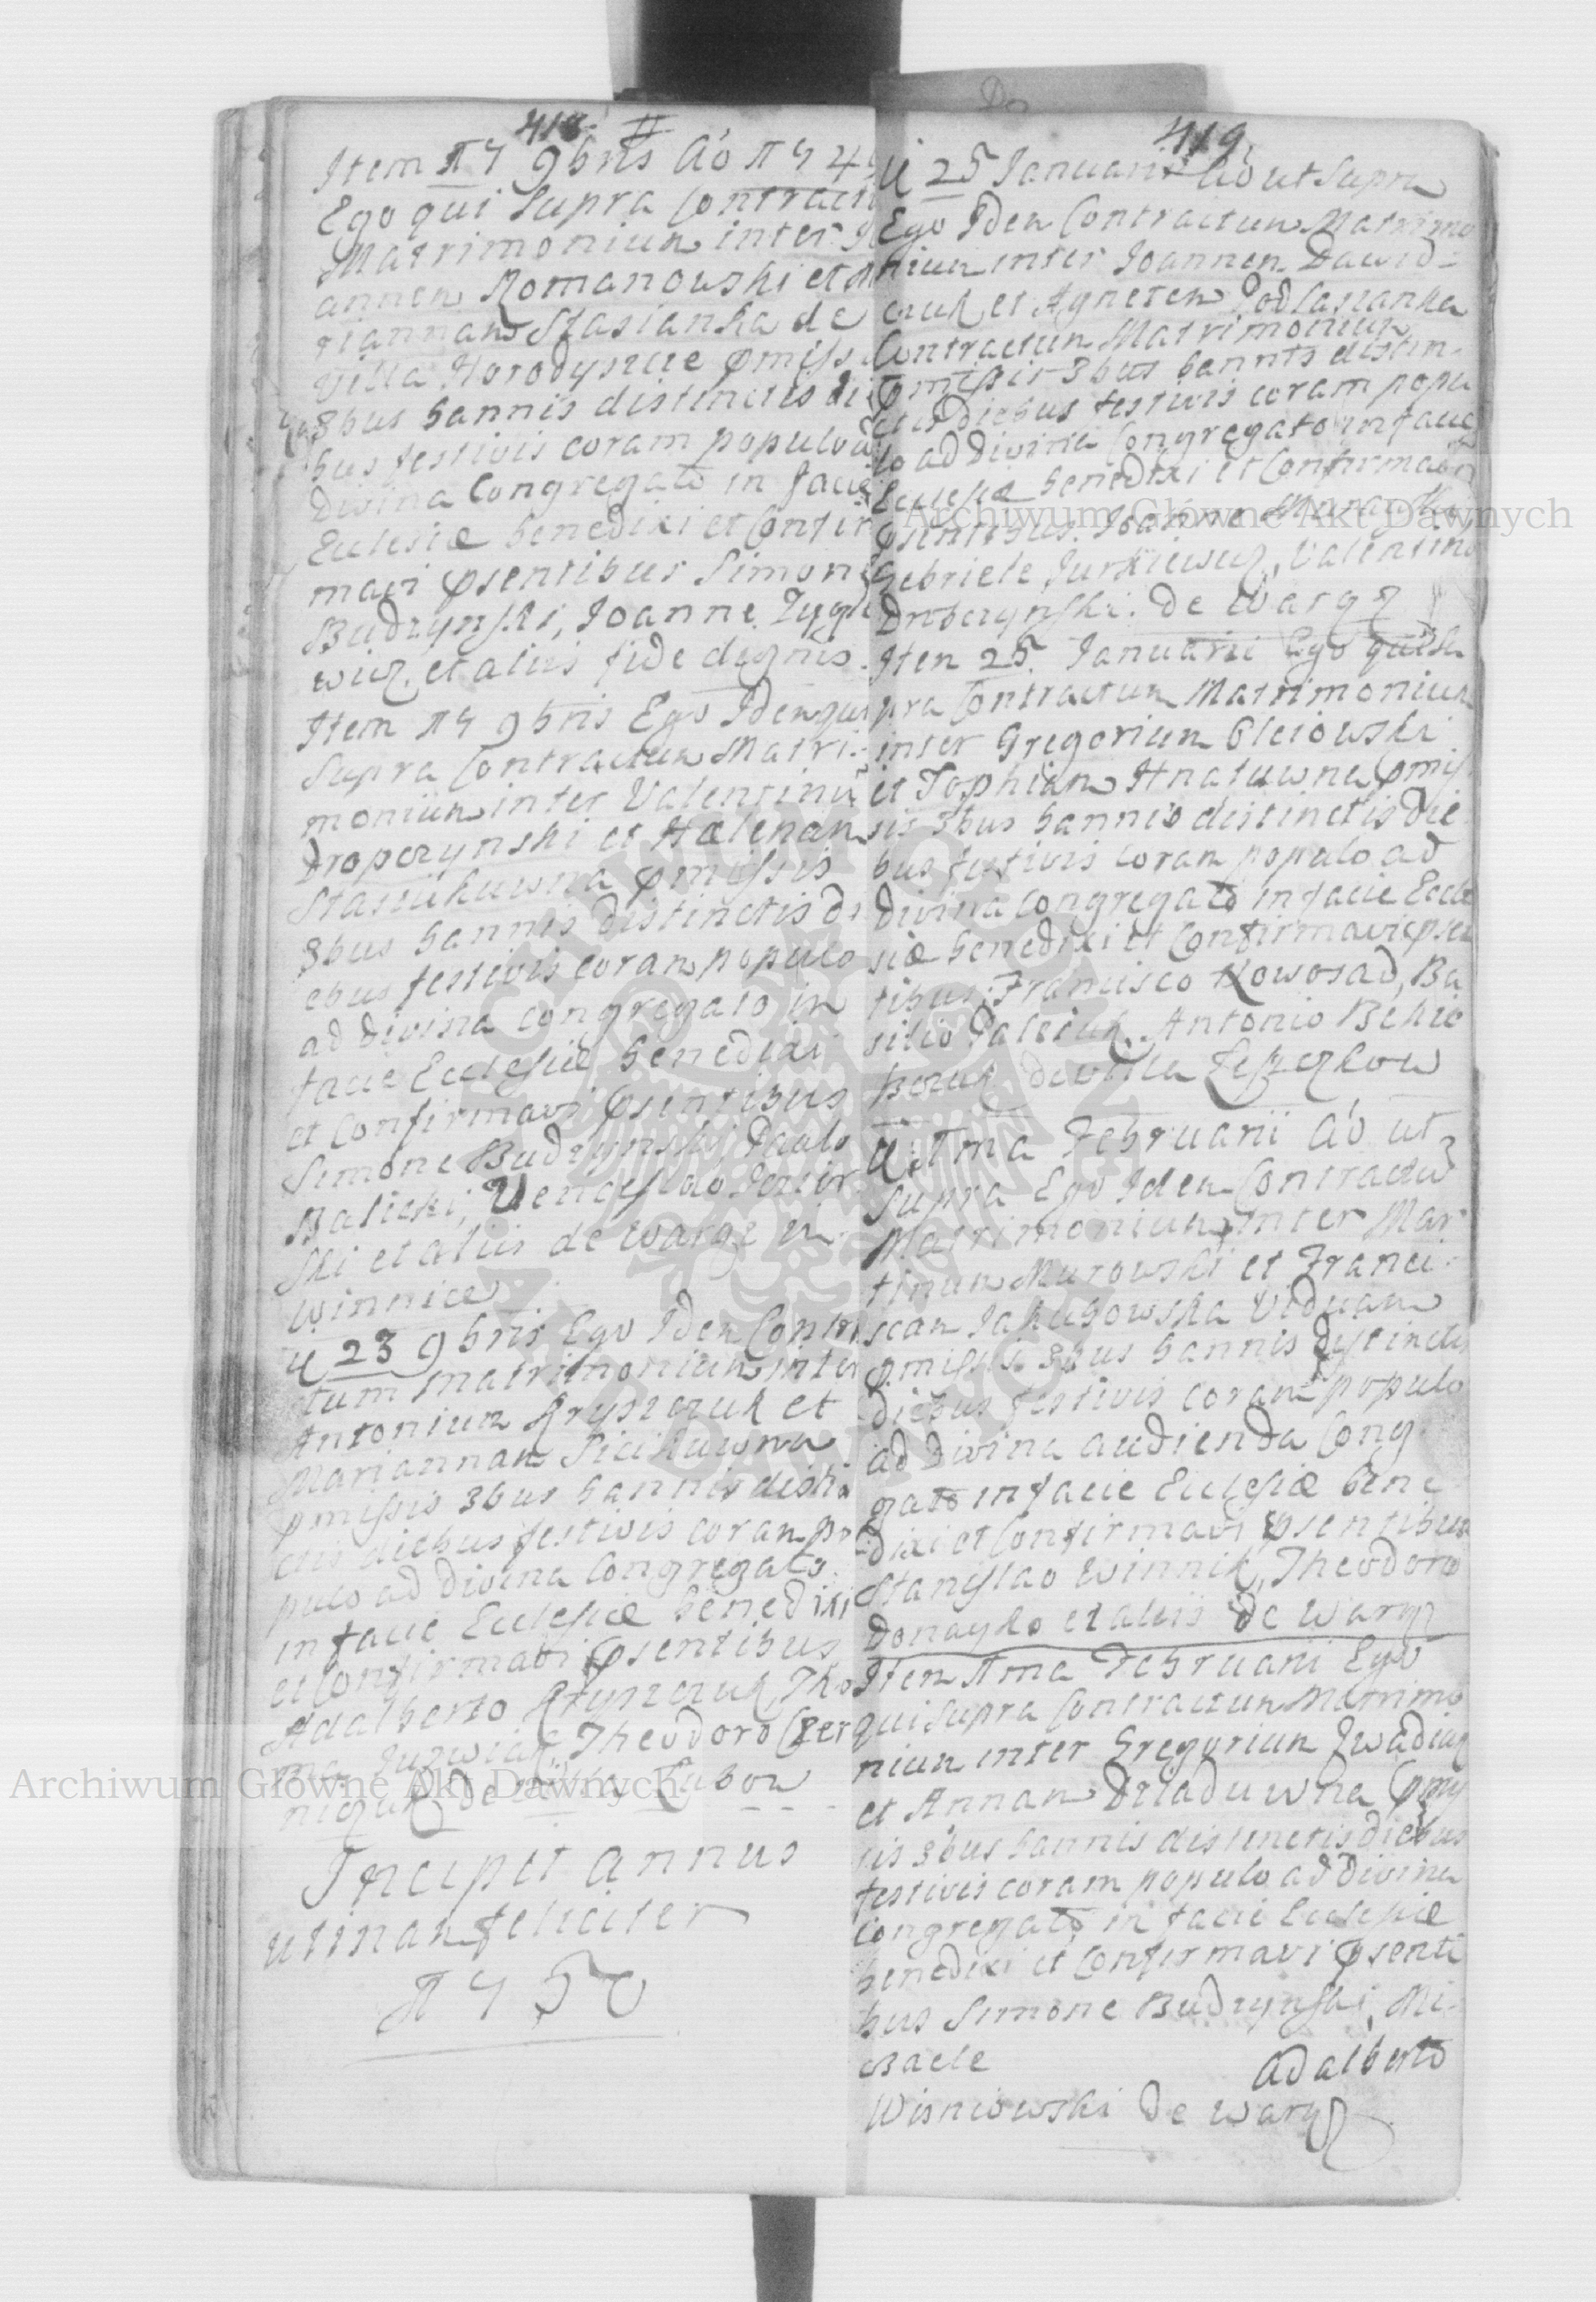 418.
Item 17 9bris Ao 174
Ego qui Supra Contractu
Matrimonium inter Jo
annem Romanowski et Ma
riannam Stasianka de
villa Horodyszcze pmiss
3bus bannis distinctis die
bus festivis coram populo ad
Divina Congregato in facie
Ecclesiæ benedixi et Confir
mavi psentibus Simone
Budzynski, Joanne Zyg
wicz. et aliis fide dignis.
Item 17 9bris Ego Idem qui
Supra Contractum Matri-
monium inter Valentinu
Dropczynski et Hælenam
Stasiukuwna pmissis
3bus bannis distinctis di
ebus festivis coram populo
ad divina congregato in
facie Ecclesiæ benedixi
et Confirmavi psentibus
Simone Budzynski, Paulo
Balicki, Venceslao Jezier
ski et aliis de Waręz in
Winnice
23 9bris Ego Idem Contra
ctum Matrimonium inter
Antonium Kryszczuk et
Mariannam Sicikuwna
pmissis 3bus bannis distin
ctis diebus festivis coram po
pulo ad divina Congregato
in facie Ecclesiæ benedixi
et Confirmavi psentibus
Adalberto Kryszczuk, Tho
ma Juzwiak, Theodoro Czer
niczuk De villa
Incipit annus
utinam feliciter
1750
419.
25 Januarii Ao ut Supra
Ego Idem Contractum Matrimo
nium inter Joannem Dawid-
czuk et Agnetem Podlasianka
Contractum Matrimonium
pmissis 3bus bannis distin-
ctis diebus festivis coram popu
lo ad Divina Congregato in facie
Ecclesiæ benedixi et Confirmavi
psentibus. Joanne Murawski
Gabriele Jurkiewicz, Valentino
Drobczynski. de Waręz
Item 25. Januarii Ego qui Su
pra Contractum Matrimonium
inter Gregorium Olciowski
et Zophiam Hnatuwna pmis
sis 3bus bannis distinctis die
bus festivis coram populo ad
Divina congregato in facie Eccle
siæ benedixi et Confirmavi psen
tibus: Francisco Nowosad, Ba
silio Paleiuk. Antonio
de villa
1ma Februarii Ao ut
Supra Ego Idem Contractu
Matrimonium inter Mar
tinum Murowski et Franci-
scam Jakubowska Viduam
pmissis 3bus bannis distinctis
diebus festivis coram populo
ad Divina audienda Con
gato in facie Ecclesiæ bene
dixi et Confirmavi psentibus
Stanislao Winnik, Theodoro
Donayko et aliis de Waręz
Item 1ma Februarii Ego
qui Supra Contractum Matrimo
nium inter Gregorium Iwadiak
et Annam Dziaduwna pmis
sis 3bus bannis distinctis diebus
festivis coram populo ad Divina
congregato in facie Ecclesiæ
benedixi et Confirmavi psenti
bus Simone Budzynski, Mi-
Adalberto
Wisniowski de Waręz
Archiwum Główne Akt Dawnych
Archiwum Główne Akt Dawnych
ARCHIWUM GŁÓWNE AKT DAWNYCH